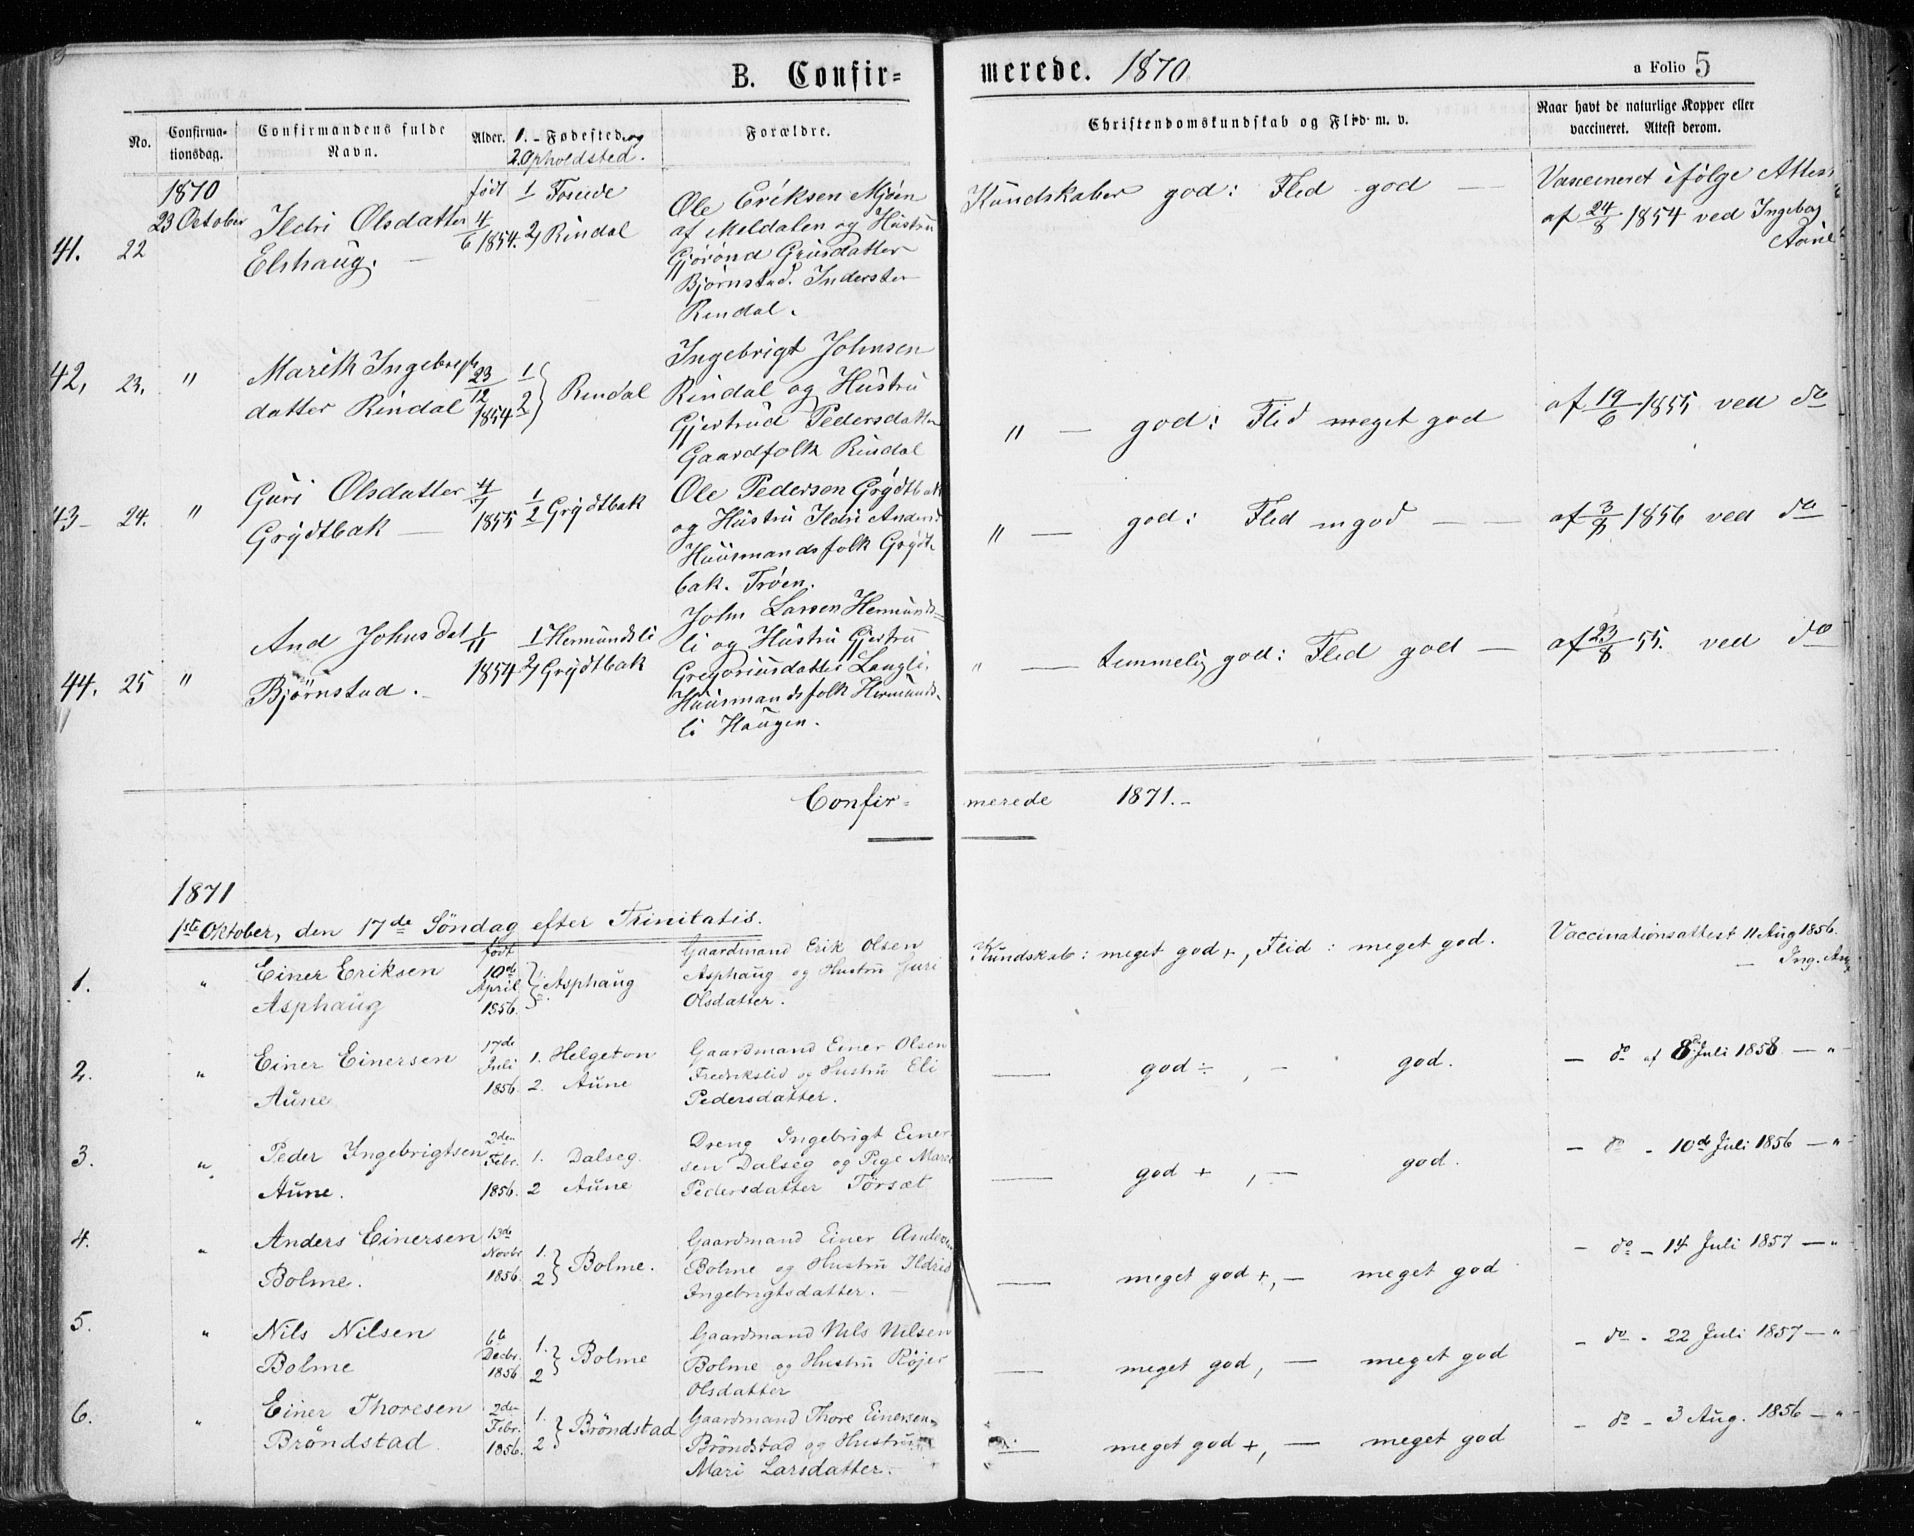 B. Confir=merede. 1870
a Folio 5
No.
Confirma-tionsdag.
Confirmandens fulde Navn.
Alder.
1. - Fødested og
2. Opholdsted.
Forældre.
Christendomskundskab og Flid m. v.
Naar havt de naturlige Kopper eller vaccineret. Attest derom.
1870
23 October
41. 22
Ildri Olsdatter
Elshaug. —
født 4/6 1854.
1/
2/ Rindal
Ole Eriksen Mjøen
af Meldalen og Hustru
Gjørønd
Bjørnstad.
Rindal.
Kundskaber god: Flid god —
Vaccineret ifølge Attest
af 24/8 1854 ved Ingebor
42. 23. "
Marith Ingebrigts
datter Rindal
23/12 1854
1/ 2/ } Rindal
Ingebrigt Johnsen
Rindal og Hustru
Gjertrud Pedersdatter
Gaardfolk Rindal
" — god: Flid meget god
af 19/6 1855 ved do
43- 24. "
Guri Olsdatter
Grÿdtbak —
1855
1/2 Grÿdtbak
Ole Pedersen Grÿdtbak
og Hustru Ildri Anders
Huusmandsfolk Grÿdt-
bak. Trøen.
" — god: Flid mgod — —
af 3/8 1856 ved do
44. 25 "
And Johnsdat
Bjørnstad. -
1/11 1854
1/ Hermundsli
2/ Grÿdtbak
John Larsen Hermunds=
li og Hustru Gjertru
Gregoriusdatter Langli.
Huusmandsfolk Hermunds-
li Haugen.
" — temmelig god: Flid god —
af 23/8 55. ved do
Confir=merede 1871.-
1871
1ste Oktober, den 17de Søndag efter Trinitatis.
1. "
Einer Eriksen
Asphaug
født
10de
April
1856.
} Asphaug
Gaardmand Erik Olsen
Asphaug og Hustru Guri
Olsdatter.
Kundskab: meget god +, Flid: meget god.
Vaccinationsattest 11 Aug 1856.
— Ing.
2. "
Einer Einersen
Aune
17de
Juli
1856
1. Helgeton
2. Aune
Gaardmand Einer Olsen
Fredrikslid og Hustru Eli
Pedersdatter.
— god ÷, — god.
— do af 8 Juli 1858 — "
3. "
Peder Ingebrigtsen
Aune.
2den
Febr.
1856.
1. Dalseg.
2 Aune
Dreng Ingebrigt Einer
sen Dalseg og Pige Marit
Pedersdatter Törsæt
god +, — god.
— do - 10de Juli 1856 — "
4. "
Anders Einersen
Bolme.
13de
Novbr
1856.
1. 2 } Bolme.
Gaardmand Einer Andersen
Bolme og Hustru Ildrid
Ingebrigtsdatter. —
— meget god +, — meget god
- do - 14 Juli 1857 — "
5. "
Nils Nilsen
Bolme
6te
Decbr.
1856
1. 2 } Bolme
Gaardmand Nils Nilsen
Bolme og Hustru Röjer
Olsdatter
— meget god, — meget god
- do - 22 Juli 1857 — "
6. "
Einer Thoresen
Bröndstad
2den
Febr.
1856.
1. 2 } Bröndstad
Gaardmand Thore Einersen
Bröndstad og Hustru
Mari Larsdatter. -
— meget god +, — meget god
- do - 3 Aug. 1856 — "